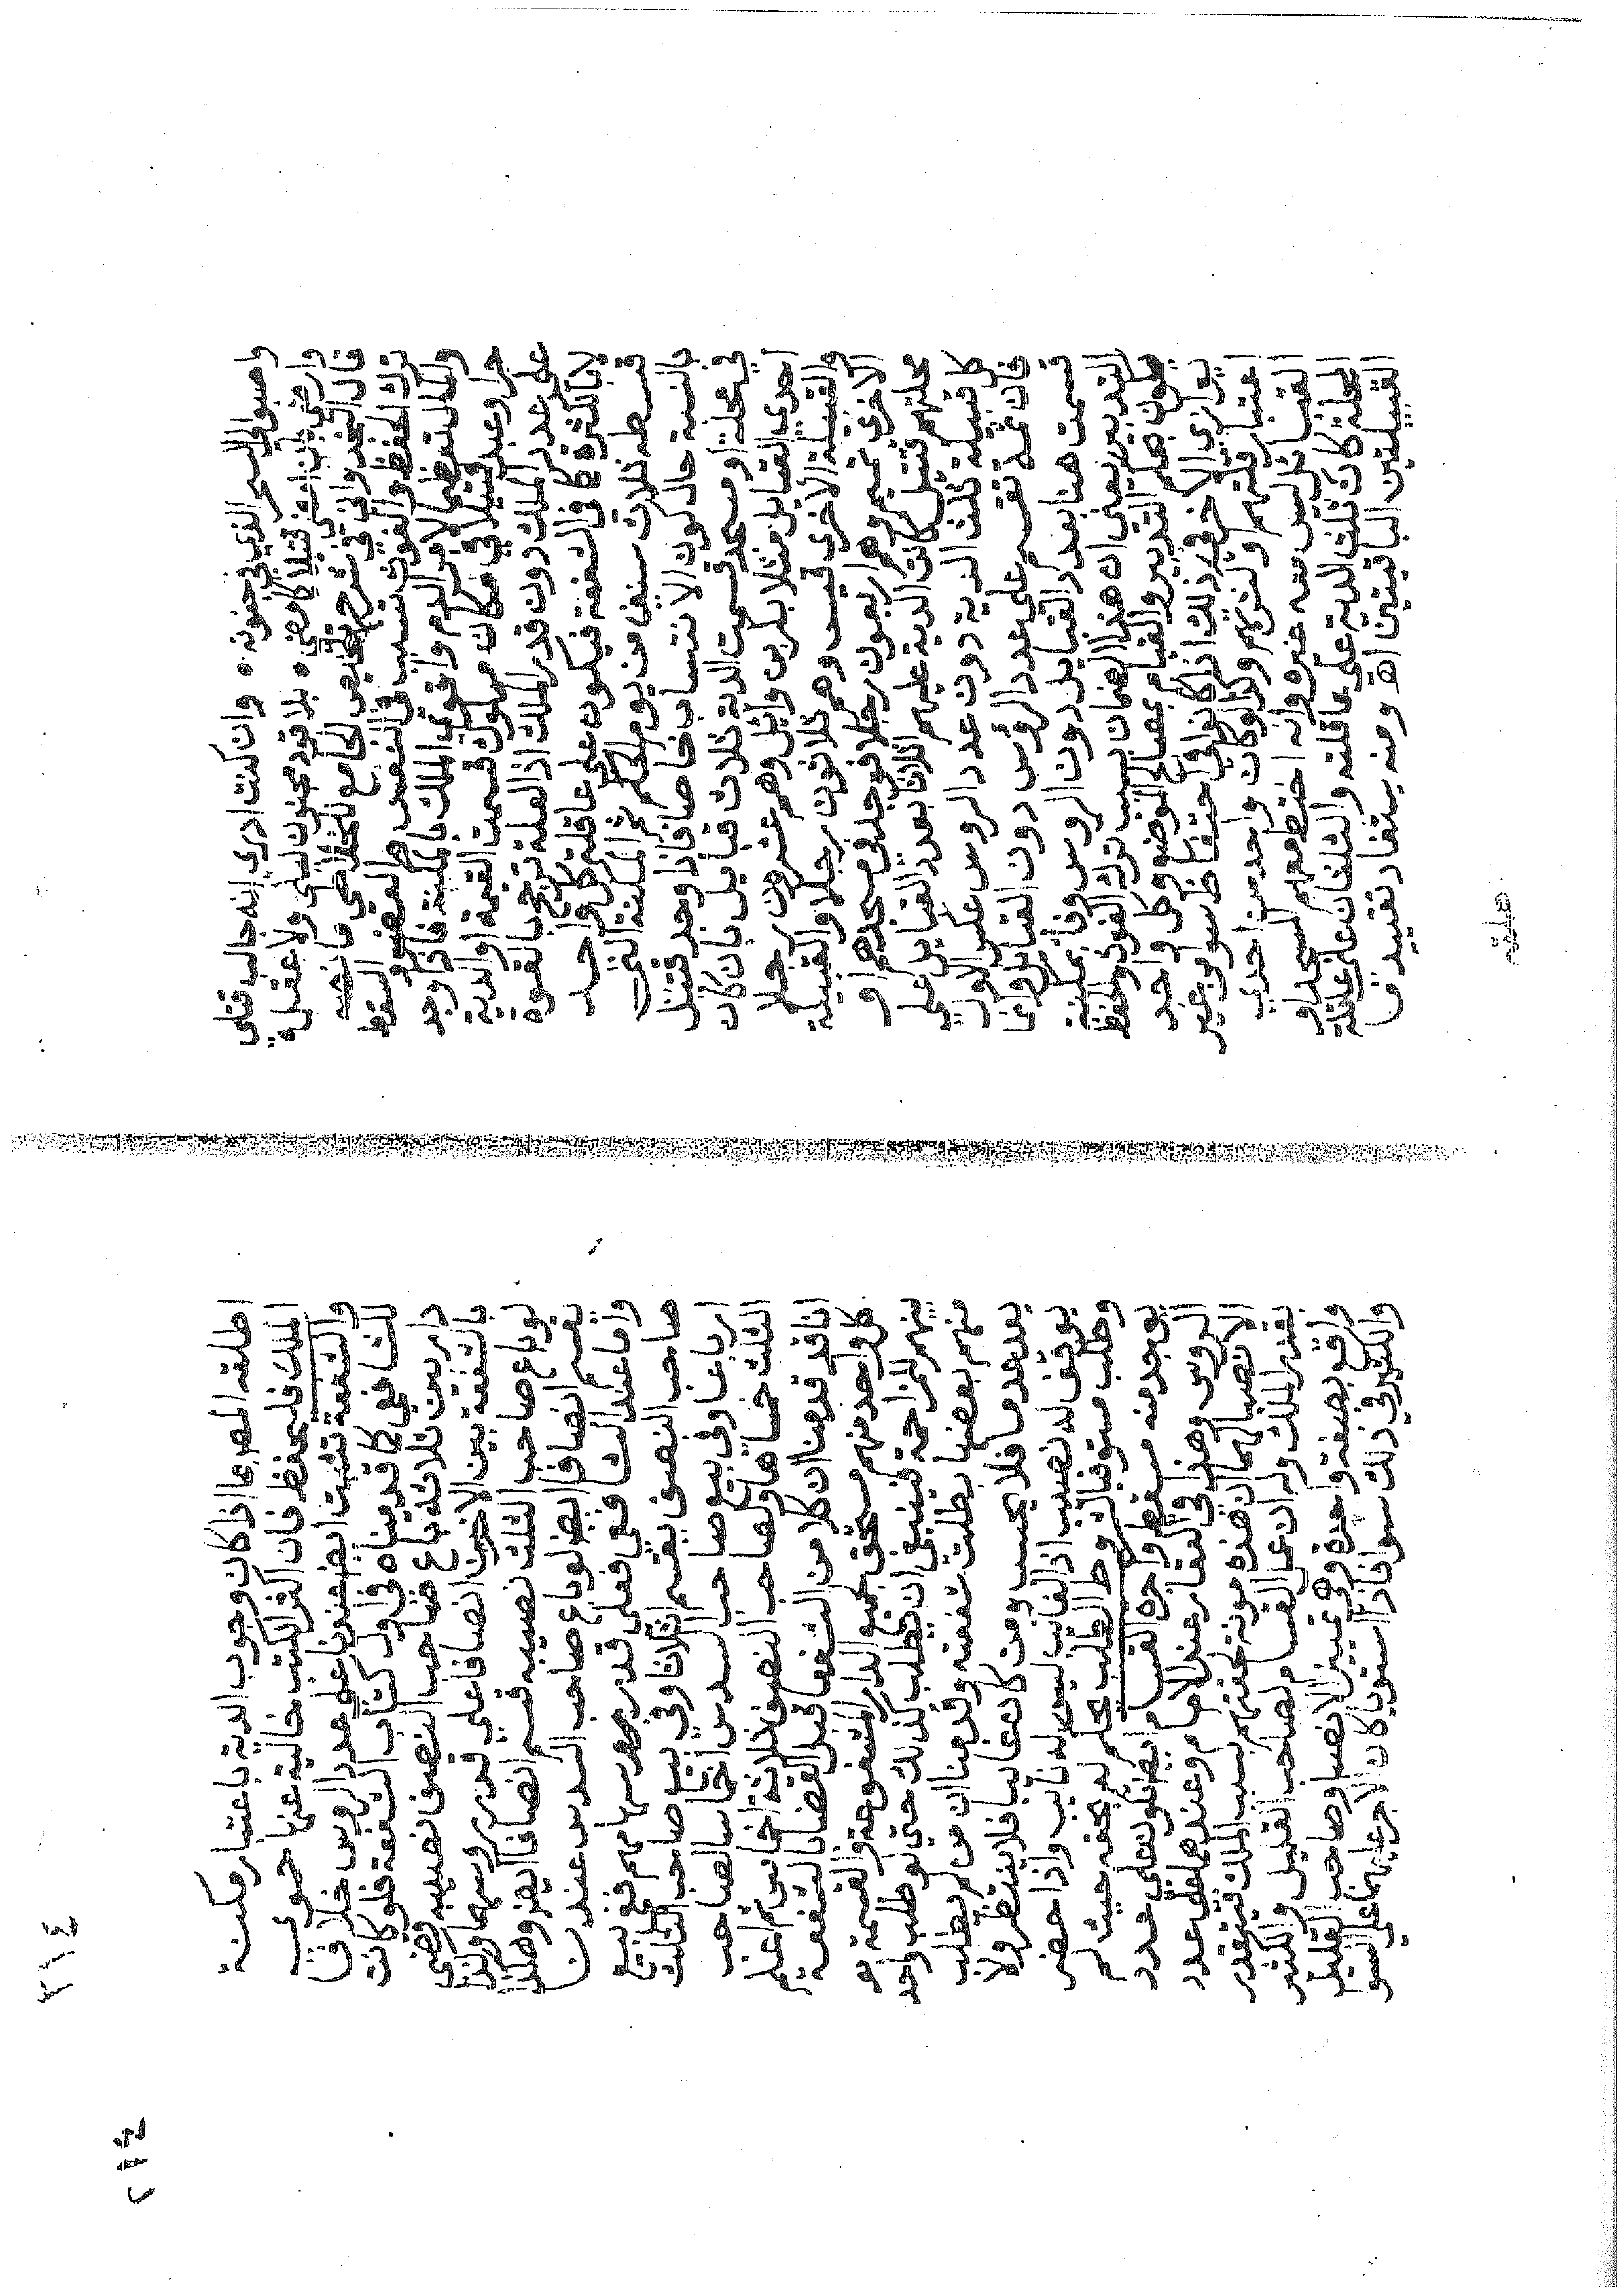 واصبوا الي السحر الذي في جفونه ٥ وان كنت ادري انه جالب قتلي
وارضي بان امضي قتيلا كما مضي ٥ بلا قود مجنون ليلي ولا عقل
قال في شرح تلخيص الجامع للخلاطي ما نصه
ترك الحفظ والغوث تسبب في النفس والعضو السقط
والمال تعظيما لامر الدم واقوي الملك بالمكنة فاذا وجد
حرا وعبد قتيلا في مكان مملوك قسمت القيمة او الدية
علي عدد الملاك دون قدر الملك اذ العلة ترجح بالقوة
لا بالكثرة كما في الشفعة فيكون علي عاقلة كل واحد
قسطه ثلاث سنين من يوم الحكم ثم المكنة التي
بالنسبة حال كون الانتساب خاصا فاذا وجد قتيل
في محلة او مسجد قسمت الدية ثلاث قبايل بان كان
احدي القبايل مثلا بكر بن وائل وهم عشرون رجلا
والقبيلة الاخري قيس وهم ثلاثون رجلا والقبيلة
الاخري تميم وهم اربعون رجلا فوجد في مسجدهم او
محلتهم قتيل كانت الدية عليهم اثلاثا بعدد القبايل علي
كل قبيلة ثلث الدية دون عدد الروس عكس الاول
فان ثمة تقسم علي عدد الروس دون القبايل وانما
قسمت هنا بعدد القبايل دون الروس وفا بمكنة
التدبير يعني ان هذا الضمان بسبب ترك الغوث والحفظ
لكون لهم التدبير والقيام بمصالح الموضع وكل واحد
يوازي الاخر في ذلك اذ كانوا في احتفاظ سوا من غير
اعتبار قلتهم او كثرتهم وكذا لو كان واحد من احدي
القبائل ليس منه غيره وانه اختط معهم المسجد او
المحلة كان ثلث الدية علي عاقلته والثلثان علي عاقلة
القبيلتين الباقيتين اه ومنه يستفاد تقييد
اطلقه المص بما اذا كان وجوب الدية باعتبار مكنة
الملك فليحفظ فان اكثر الكتب خالية عنها حموي
والشفعة تثبت ايض عندنا علي عدد الروس خلافا
للشافعي كما قدمناه في اول كتاب الشفعة فلو كانت
دار بين ثلاثة باع صاحب النصف نصيبه قضي
بالشفعة بين الاخرين انصافا علي قدر روسهما وكذا
لو باع صاحب الثلث نصيبه قسم انصافا ايض وهكذا
يقسم انصافا ايض لو باع صاحب السدس عندنا
واما عند الشافعي فعلي قدر سهامهم ففي بيع
صاحب النصف يقسم اثلاثا وفي بيع صاحب الثلث
ارباعا وفي بيع صاحب السدس اخماسا لصاحب
الثلث خمساها ولصاحب النصف ثلاثة اخماس ثم اعلم
انا قد قدمنا ان كلا من الشفعا قبل القضا بالشفعة
كل واحد منهم مستحق جميع الدار المشفوعة والقسمة
بينهم للمزاحمة فينبغي ان يطلب كذلك حتي لو طلب واحد
منهم بعضها بطلت شفعته وقدمنا ان من لم يطلب
بعد عدما فلا يحسب ومن كان غايبا فلا ينتظر ولا
يوقف له نصيب اذ الغايب ليس له نايب واذا حضر
وطلب مستوفيا لشروط الطلب يحكم له بحقه حيث لم
يوجد منه مسقط واجرة القسام ايض تكون علي عدد
الروس وهذا في العقار عند الامام وعندهما علي عدد
الانصبا لهما ان هذه مونة لحقتهم بسبب الملك فيتقدر
بقدر الملك وله ان عمل القسام لصاحب القليل والكثير
واقع بصفة واحدة وهي تمييز الانصبا وصاحب القليل
والكثير في ذلك سوا فاذا استويا كان الاجر عليهما علي السوا
٢١٤
٢١٤